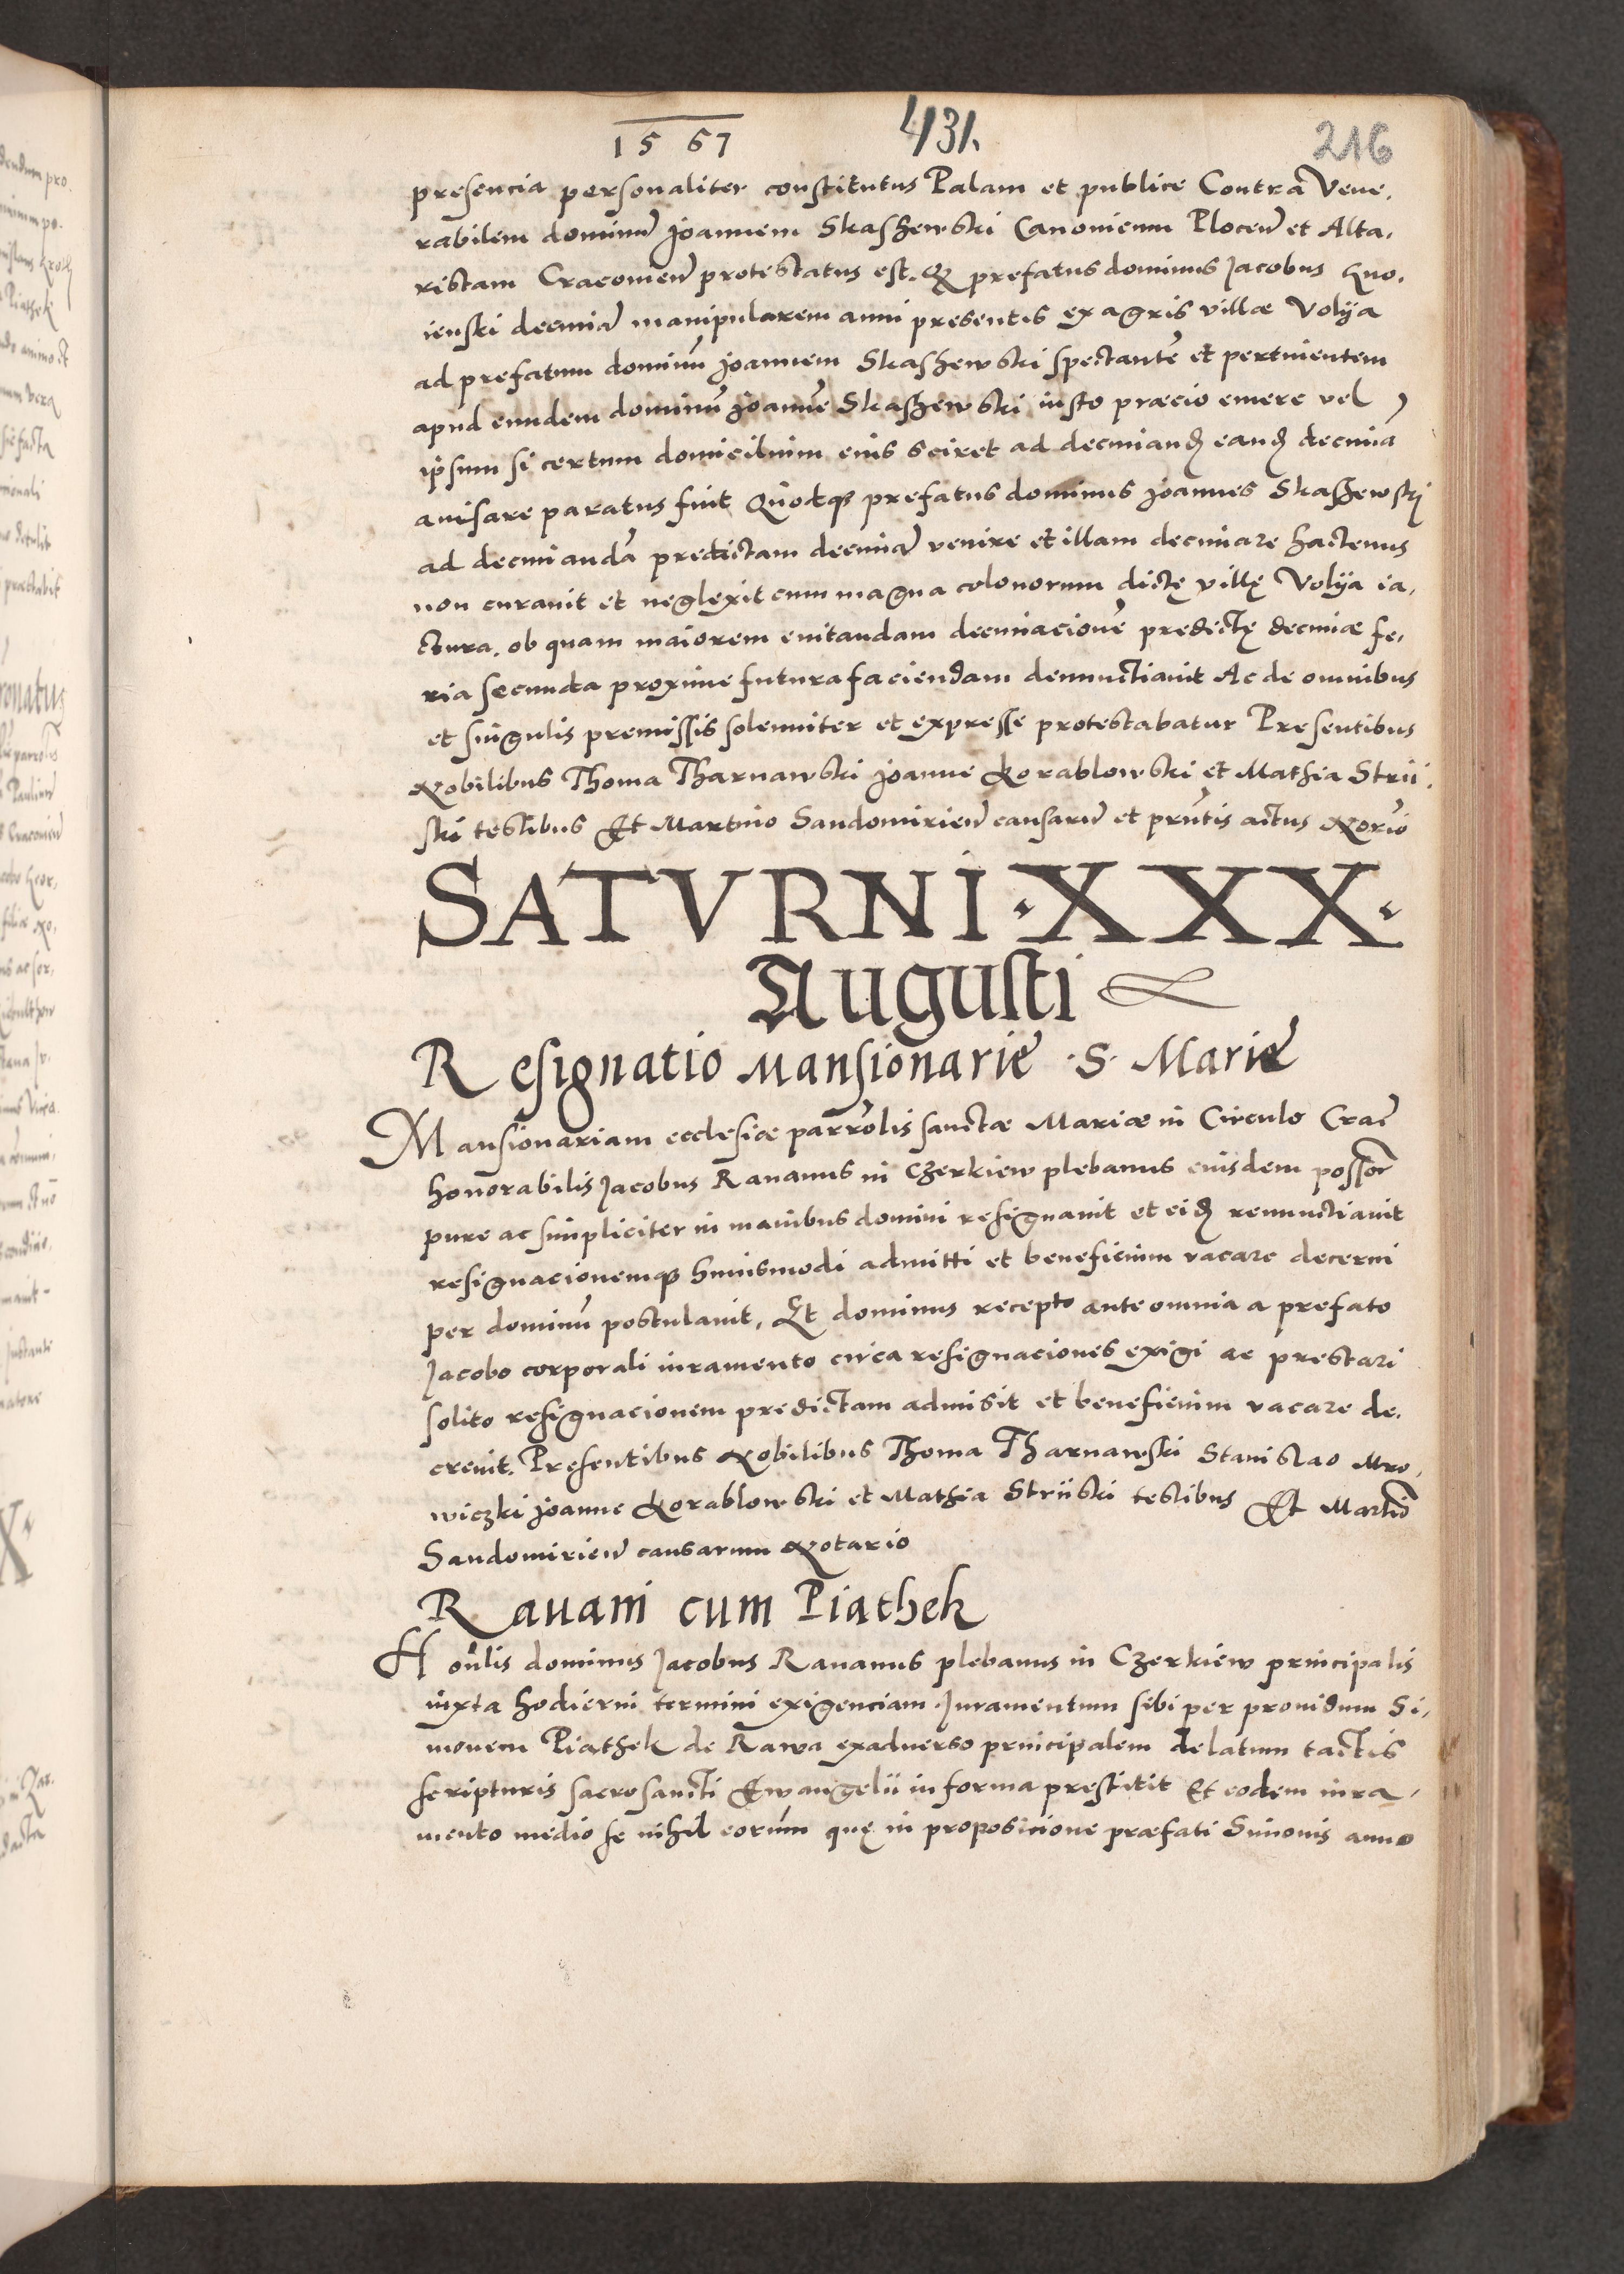 1567 431. 216
presencia personaliter constitutus Palam et publice Contra Vene,
rabilem dominu Joannem Skaszewski Canonicum Plocen et Alta,
ristam Cracovien protestatus est. Q prefatus dominus Jacobus
ienski decima manipularem anni presentis ex agris villæ Volÿa
ad prefatum dominū Joannem Skaszewski spectantē et pertinentem
apud eundem dominū Joannē Skaszewski iusto præcio emere vel
ipsum si certum domicilium eius sciret ad decimand eand decimā
avisare paratus fuit Quodq prefatus dominus Joannes Skaszewskj
ad decimandā predictam decima venire et illam decimare hactenus
non curavit et neglexit cum magna colonorum dictę villę Volÿa ia,
ctura. ob quam maiorem evitandam decimacionē predictę decimæ fe,
ria secunda proxime futura faciendam denunctiavit Ac de omnibus
et singulis premissis solenniter et expresse protestabatur Presentibus
Nobilibus Thoma Tharnawski Joanne Korablowski et Mathia Strii,
ski testibus Et Martino Sandomirien causaru et prntis actus Norio
SATVRNI · XXX ·
Augusti
Resignatio Mansionarie · S · Marie
Mansionariam ecclesiæ parrōlis sanctæ Mariæ in Circulo Crac
honorabilis Jacobus Ravanus in Czerkiew plebanus eiusdem possor
pure ac simpliciter in manibus domini resignavit et eid renunctiavit
resignacionemq huiusmodi admitti et beneficium vacare decerni
per dominū postulavit, Et dominus recepto ante omnia a prefato
Jacobo corporali iuramento circa resignaciones exigi ac prestari
solito resignacionem predictam admisit et beneficium vacare de,
crevit. Presentibus Nobilibus Thoma Tharnawski Stanislao Mro,
wiczki Joanne Korablowski et Mathia Striiski testibus Et Martio
Sandomirien causarum Notario
Ravani cum Piathek
Honlis dominus Jacobus Ravanus plebanus in Czerkiew principalis
iuxta hodierni termini exigenciam Juramentum sibi per providum Si,
monem Piathek de Rawa exadverso principalem delatum tactis
scripturis sacrosancti Ewangelii in forma prestitit Et eodem iura,
mento medio se nihil eorum quę in proposicione præfati Simonis anno